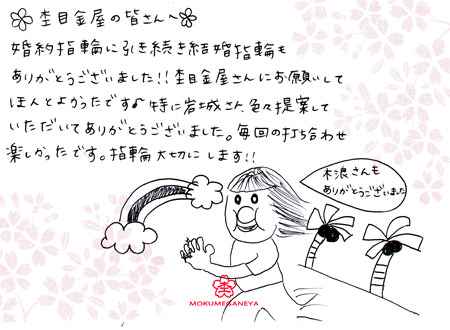 杢目金屋の皆さんへ
婚約指輪に引き続き結婚指輪も
ありがとうございました!!杢目金屋さんにお願いして
ほんとよかったです♪特に岩城さん色々提案して
いただいてありがとうございました。毎回の打ち合わせ
楽しかったです。指輪大切にします!!
木浪さんも
ありがとうございました
MOKUMEGANEYA